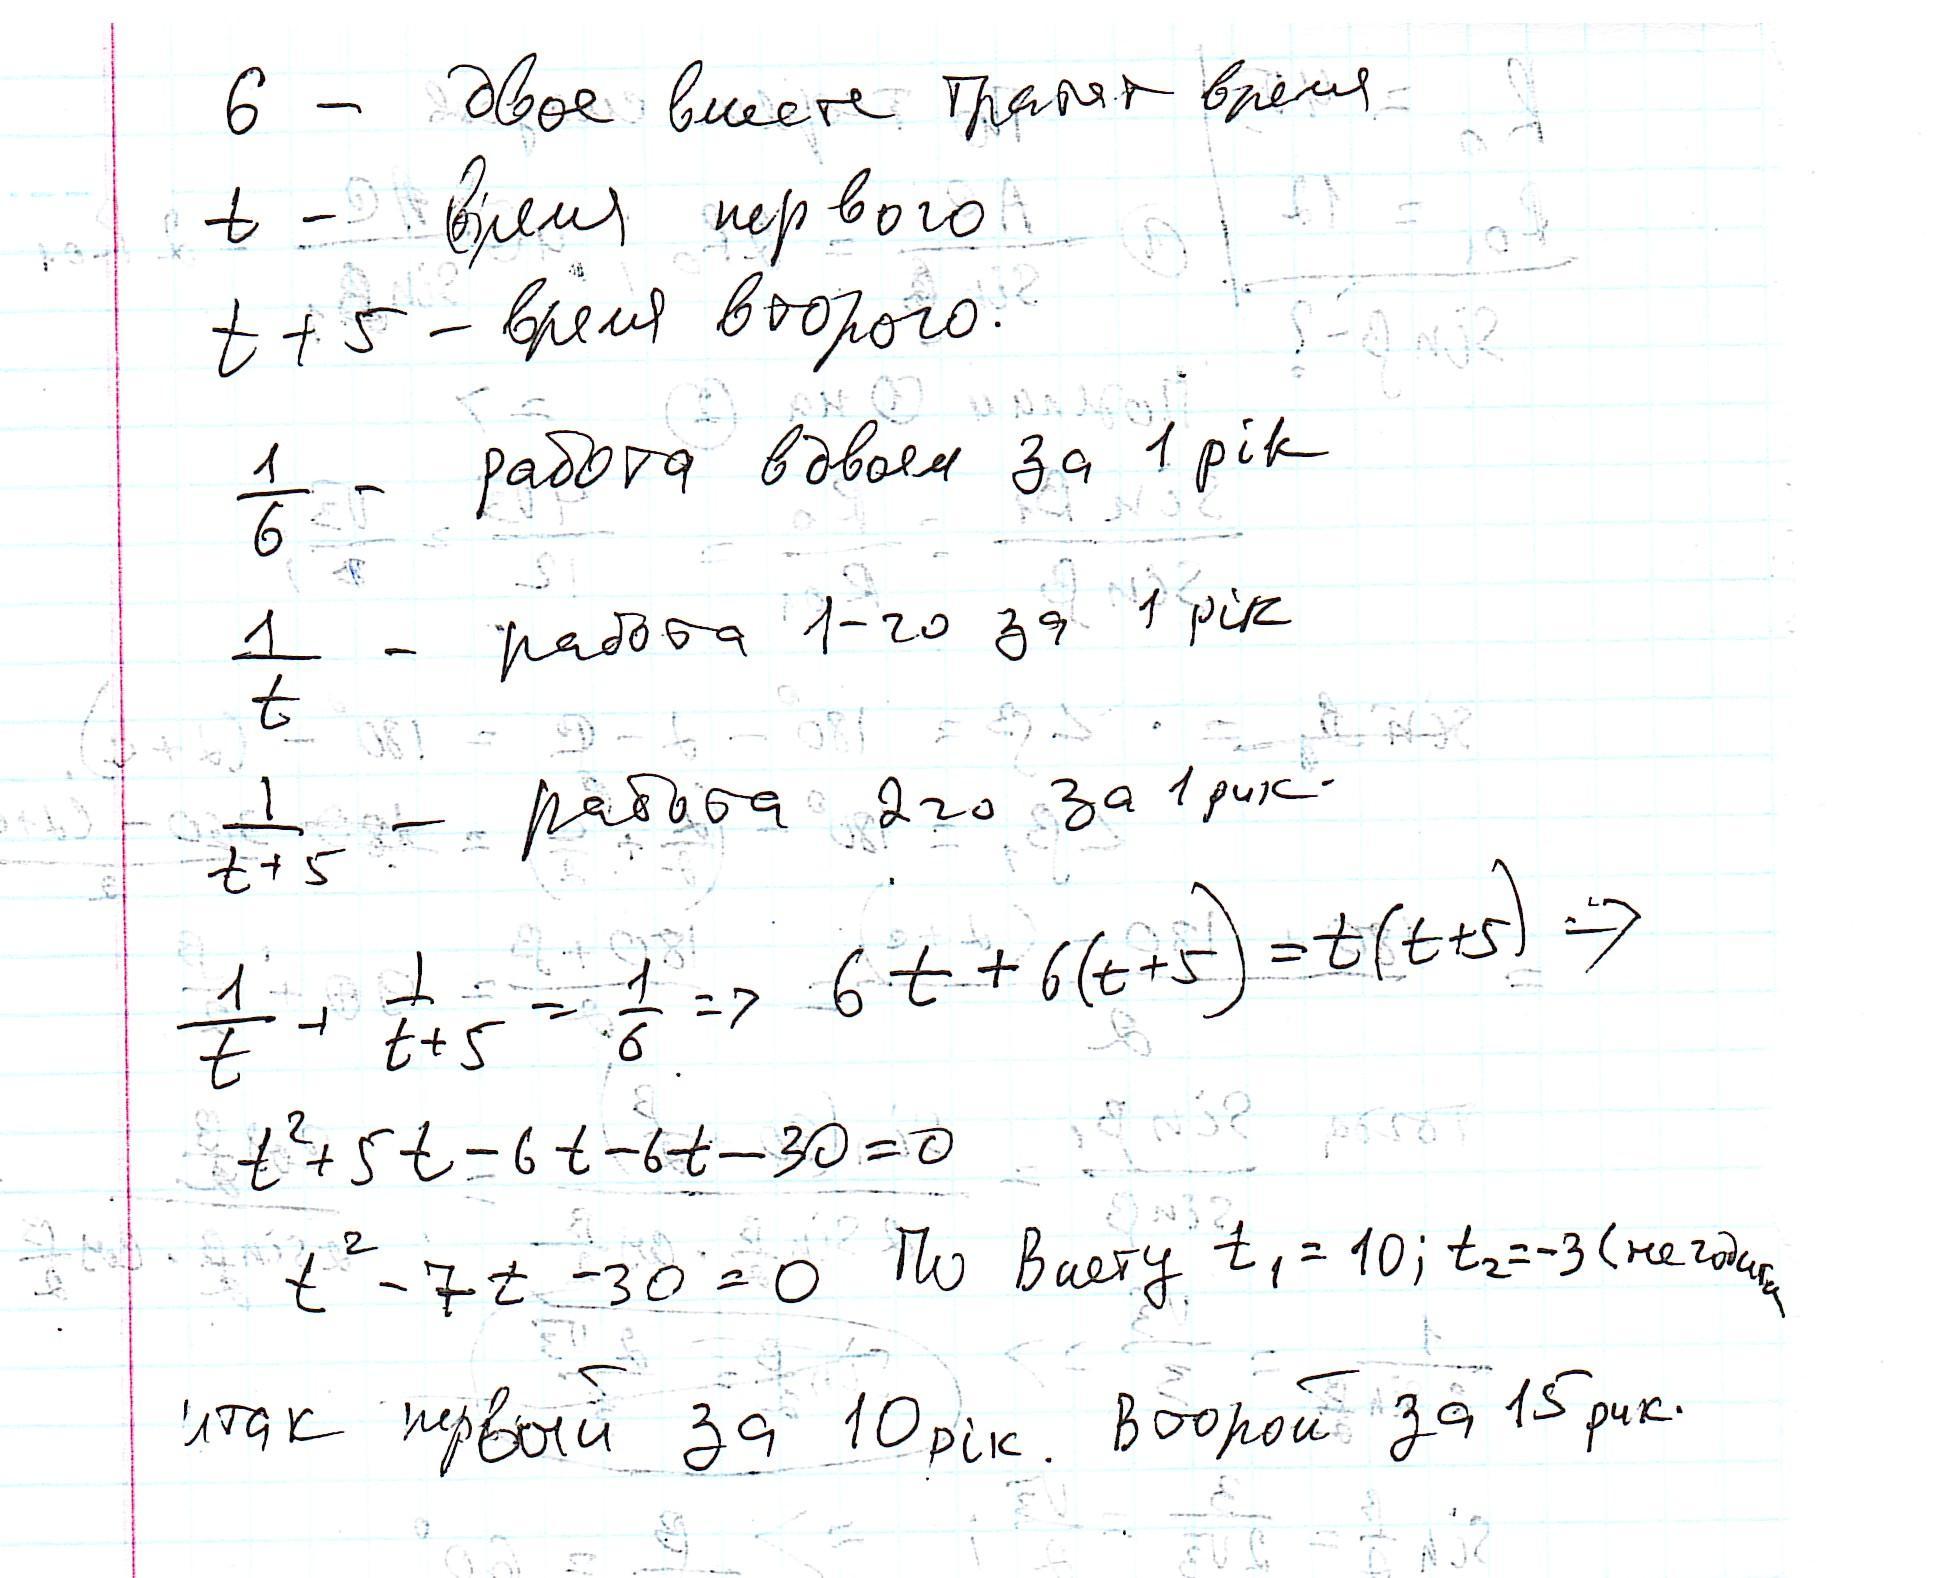 6 - двое вместе тратят время
t - время первого
t + 5 - время второго.
1/6 - работа вдвоем за 1 рік
1/t - работа 1-го за 1 рік
1/(t+5) - работа 2го за 1 рик.
1/t + 1/(t+5) = 1/6 => 6t + 6(t+5) = t(t+5) =>
t² + 5t - 6t - 6t - 30 = 0
t² - 7t - 30 = 0 По Виету t₁ = 10; t₂ = -3 (не годится
итак первый за 10 рік. Второй за 15 рик.